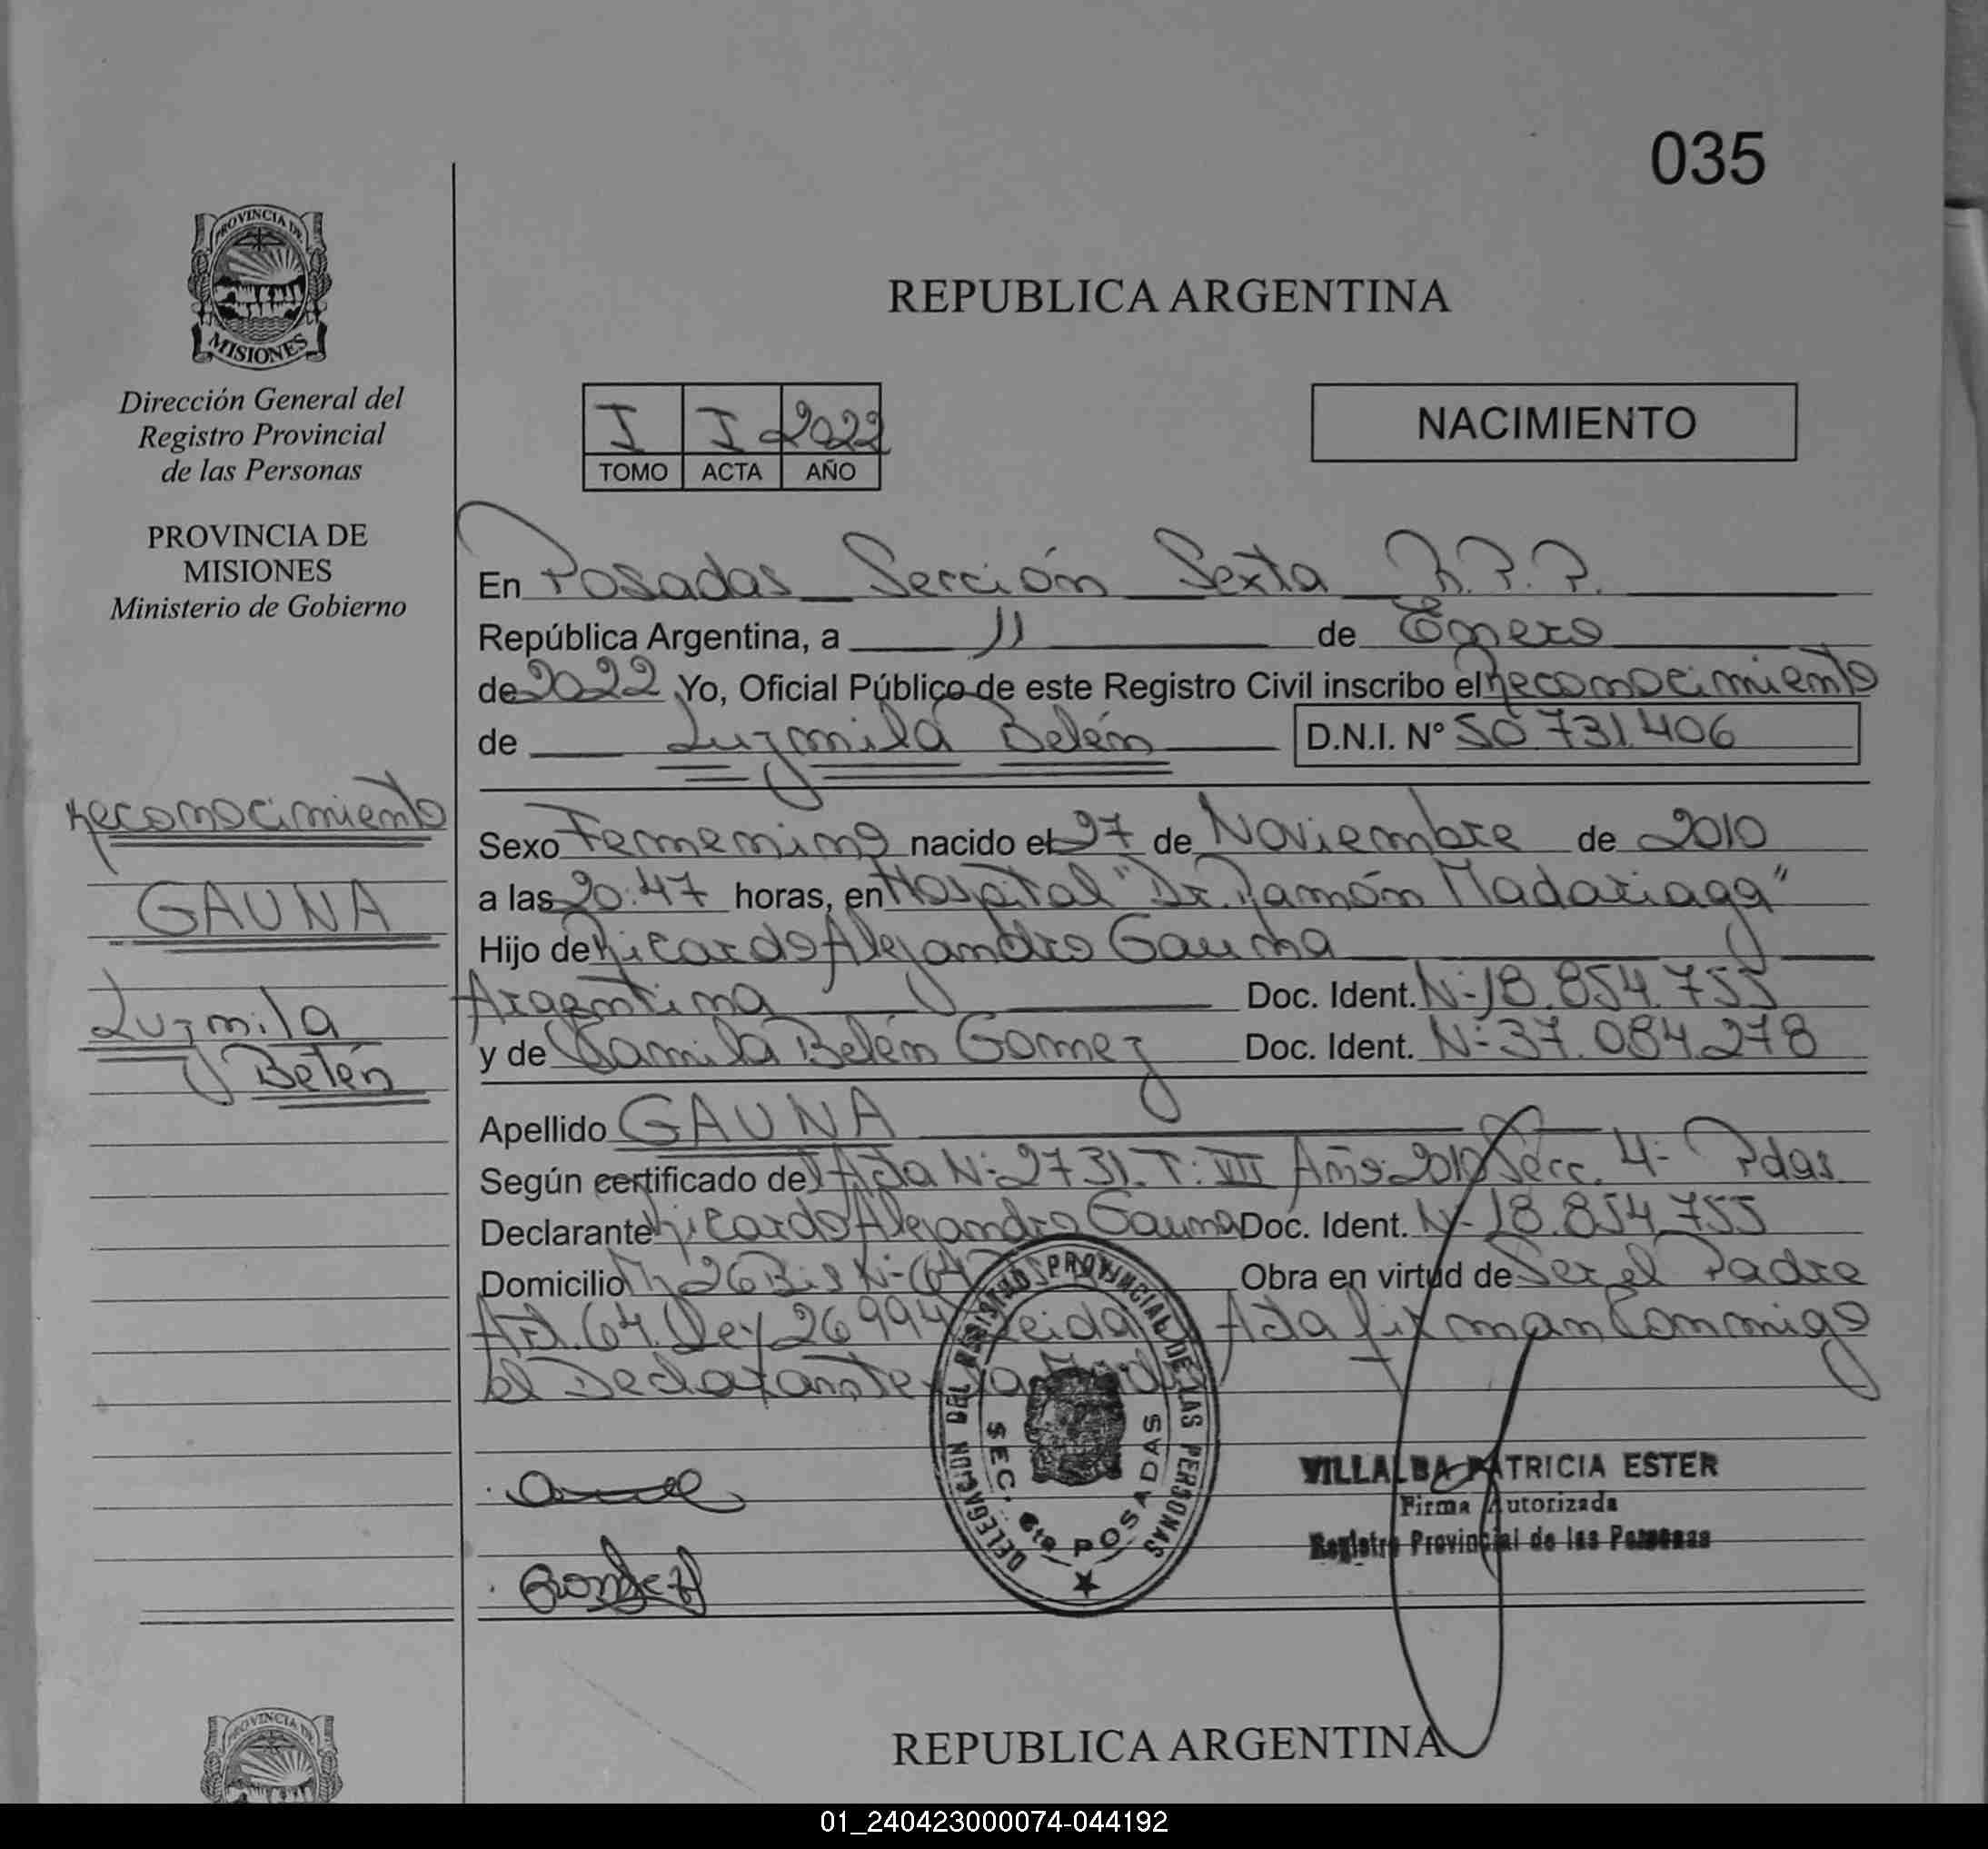 035
PROVINCIA DE
MISIONES
Dirección General del
Registro Provincial
de las Personas
PROVINCIA DE
MISIONES
Ministerio de Gobierno
REPUBLICA ARGENTINA
I I 2022
TOMO ACTA AÑO
NACIMIENTO
En Posadas Sección Sexta R.P.P.
República Argentina, a 11 de Enero
de 2022 Yo, Oficial Público de este Registro Civil inscribo el Reconocimiento
de Luzmila Belén D.N.I. N° 50.731.406
reconocimiento
GAUNA
Luzmila
Belén
Sexo Femenino nacido el 27 de Noviembre de 2010
a las 20:47 horas, en Hospital "Dr. Ramón Madariaga"
Hijo de Ricardo Alejandro Gauna
Argentina Doc. Ident. N-18.854.755
y de Camila Belén Gomez Doc. Ident. N-37.084.278
Apellido GAUNA
Según certificado del Acta N-2731. T: VII Año 2010 Secc. 4- Pdas.
Declarante Ricardo Alejandro Gauna Doc. Ident. N-18.854.755
Domicilio 26 Bis N- Obra en virtud de Ser el Padre
Art. 64. Ley 26994 Leida Acta firman Conmigo
el Declarante
DELEGACION DEL REGISTRO PROVINCIAL DE LAS PERSONAS
SEC. 6ta POSADAS
VILLALBA PATRICIA ESTER
Firma Autorizada
Registro Provincial de las Personas
PROVINCIA DE
REPUBLICA ARGENTINA
01_240423000074-044192